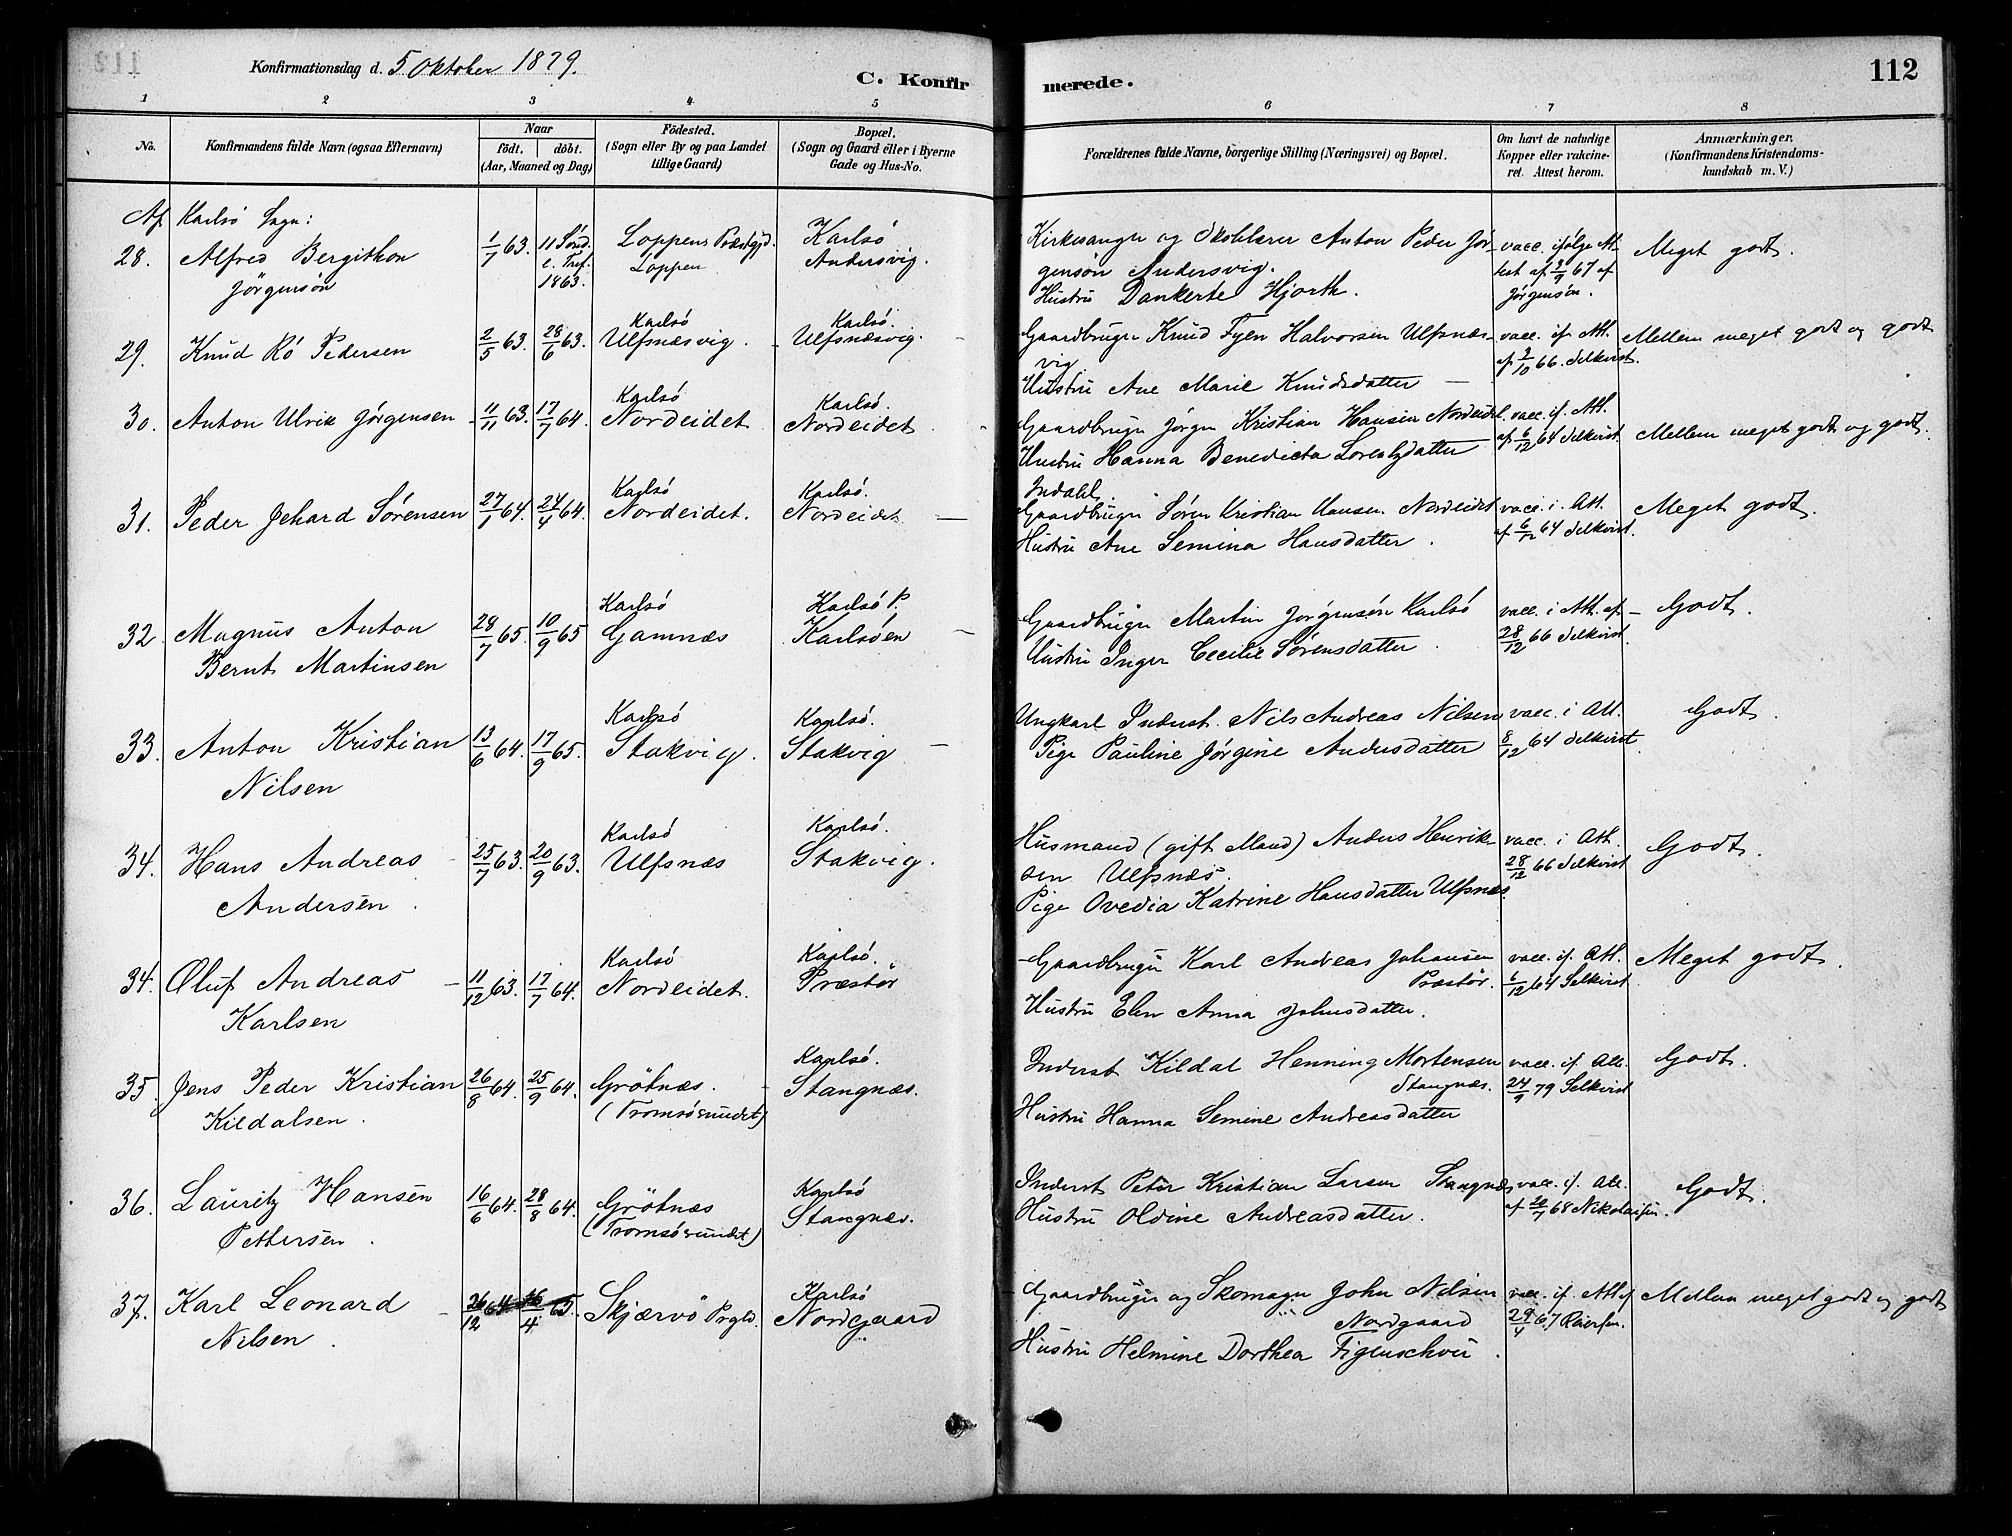 Konfirmationsdag d. 5 Oktober 1879.
C. Konfirmerede.
112
1 2 3 4 5 6 7 8
No.
Konfirmandens fulde Navn (ogsaa Efternavn)
Naar
födt. döbt.
(Aar, Maaned og Dag)
Födested.
(Sogn eller By og paa Landet
tillige Gaard)
Bopæl.
(Sogn og Gaard eller i Byerne
Gade og Hus-No.
Forældrenes fulde Navne, borgerlige Stilling (Næringsvei) og Bopæl.
Om havt de naturlige
Kopper eller vakcine-
ret. Attest herom.
Anmærkninger.
(Konfirmandens Kristendoms-
kundskab m. V.)
Af Karlsö Sogn:
28. Alfred Bergithon
Jörgensön
1/7 63. 11 Sönd.
e. Tref.
1863.
Loppens Præstgjd.
Loppen
Karlsö
Andersvig.
Kirkesanger og Skolelærer Anton Peder Jör-
gensön Andersvig.
Hustru Dankerte Hjorth.
vacc. ifölge At-
test af 2/9 67 af
Jörgensön.
Meget godt.
29. Knud Rö Pedersen
2/5 63. 28/6 63.
Karlsö
Ulfsnæsvig.
Karlsö.
Ulfsnæsvig.
Gaardbruger Knud Fyen Halvorsen Ulfsnæs-
vig
Hustru Ane Marie Knudsdatter
vacc. if. Att.
af 2/10 66. Selkvist.
Mellem meget godt og godt
30. Anton Ulrik Jørgensen
11/11 63. 17/7 64.
Karlsö
Nordeidet
Karlsö.
Nordeidet
Gaardbruger Jörgen Kristian Hansen Nordeidet.
Hustru Hanna Benedicta Lorentzdatter
vacc. if. Att.
af 6/12 64 Selkvist
Mellem meget godt og godt.
31. Peder Jehard Sörensen
27/1 64. 24/4 64.
Karlsö
Nordeidet.
Karlsö.
Nordeidet
Indahl.
Gaardbruger Sören Kristian Hansen Nordeidet
Hustru Ane Semina Hansdatter.
vacc. i. Att.
af 6/12 64 Selkvist.
Meget godt.
32. Magnus Anton
Bernt Martinsen
28/7 65. 10/9 65
Karlsö
Gamnæs
Karlsö P.
Karlsöen
Gaardbruger Martin Jörgensön Karlsö
Hustru Inger Cecilie Sörensdatter.
vacc. i Att. af
28/12 66 Selkvist.
Godt.
33. Anton Kristian
Nilsen
13/6 64. 17/9 65.
Karlsö
Stakvig.
Karlsö.
Stakvig
Ungkarl Inderst. Nils Andreas Nilsen
Pige Pauline Jörgine Andersdatter
vacc. i Att.
8/12 64 Selkvist.
Godt.
34. Hans Andreas
Andersen.
25/7 63. 20/9 63.
Karlsö
Ulfsnæs
Karlsö.
Stakvig.
Husmand (gift Mand) Anders Henrik-
sen Ulfsnæs.
Pige Ovedia Katrine Hansdatter Ulfsnæs.
vacc. i Att.
28/12 66 Selkvist
Godt.
34. Oluf Andreas
Karlsen
11/12 63. 17/7 64.
Karlsö
Nordeidet.
Karlsö.
Præstör
Gaardbruger Karl Andreas Johansen
Præstör.
Hustru Elen Anna Johnsdatter.
vacc. if. Att.
6/12 64 Selkvist
Meget godt.
35. Jens Peder Kristian
Kildalsen.
26/8 64. 25/9 64.
Grötnæs.
(Tromsösundet)
Karlsö.
Stangnæs.
Inderst Kildal Henning Mortensen
Stangnæs.
Hustru Hanna Semine Andreasdatter
vacc. if. Att.
24/9 79 Selkvist
Godt.
36. Lauritz Hansen
Pettersen.
16/6 64. 28/8 64.
Grötnæs
(Tromsösundet)
Karlsö
Stangnæs.
Inderst Peter Kristian Larsen Stangnæs
Hustru Oldine Andreasdatter.
vacc. if. Att.
af 20/7 68 Nikolaisen.
Godt.
37. Karl Leonard
Nilsen.
26/12 64 16/4 65.
Skjærvö Prgld.
Karlsö
Nordgaard
Gaardbruger og Skomager John Nilsen
Nordgaard
Hustru Helmine Dorthea Figenschou.
vacc. if Att af
29/4 67
Mellem meget godt og godt